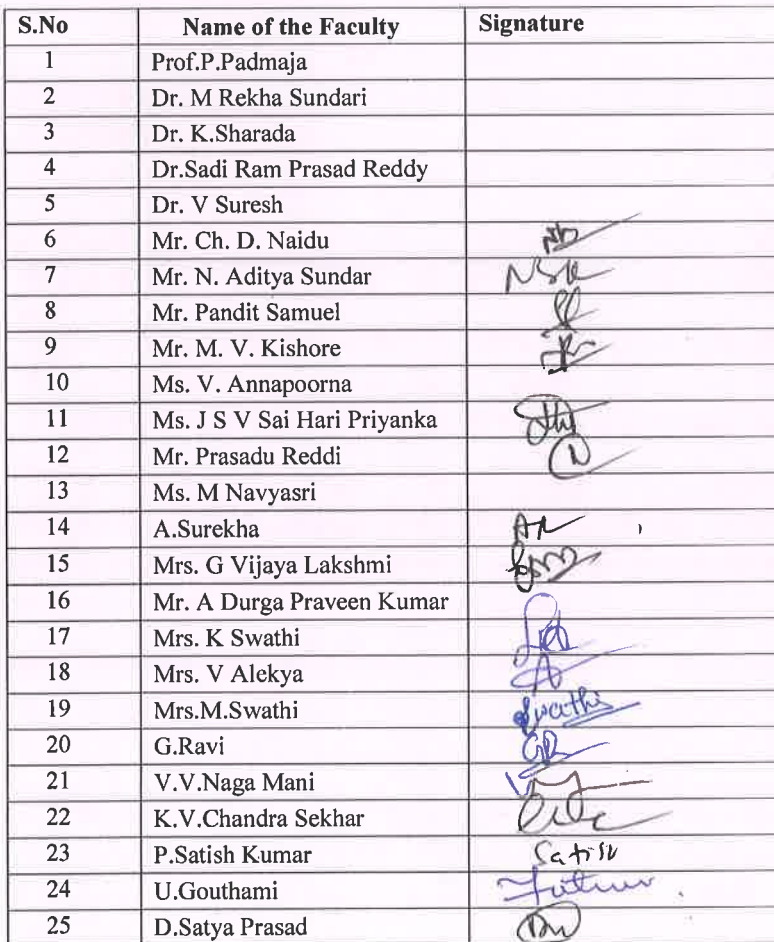 S.No Name of the Faculty Signature
1 Prof.P.Padmaja
2 Dr. M Rekha Sundari
3 Dr. K.Sharada
4 Dr.Sadi Ram Prasad Reddy
5 Dr. V Suresh
6 Mr. Ch. D. Naidu
7 Mr. N. Aditya Sundar
8 Mr. Pandit Samuel
9 Mr. M. V. Kishore
10 Ms. V. Annapoorna
11 Ms. J S V Sai Hari Priyanka
12 Mr. Prasadu Reddi
13 Ms. M Navyasri
14 A.Surekha
15 Mrs. G Vijaya Lakshmi
16 Mr. A Durga Praveen Kumar
17 Mrs. K Swathi
18 Mrs. V Alekya
19 Mrs.M.Swathi Swathi
20 G.Ravi
21 V.V.Naga Mani
22 K.V.Chandra Sekhar
23 P.Satish Kumar Satish
24 U.Gouthami
25 D.Satya Prasad